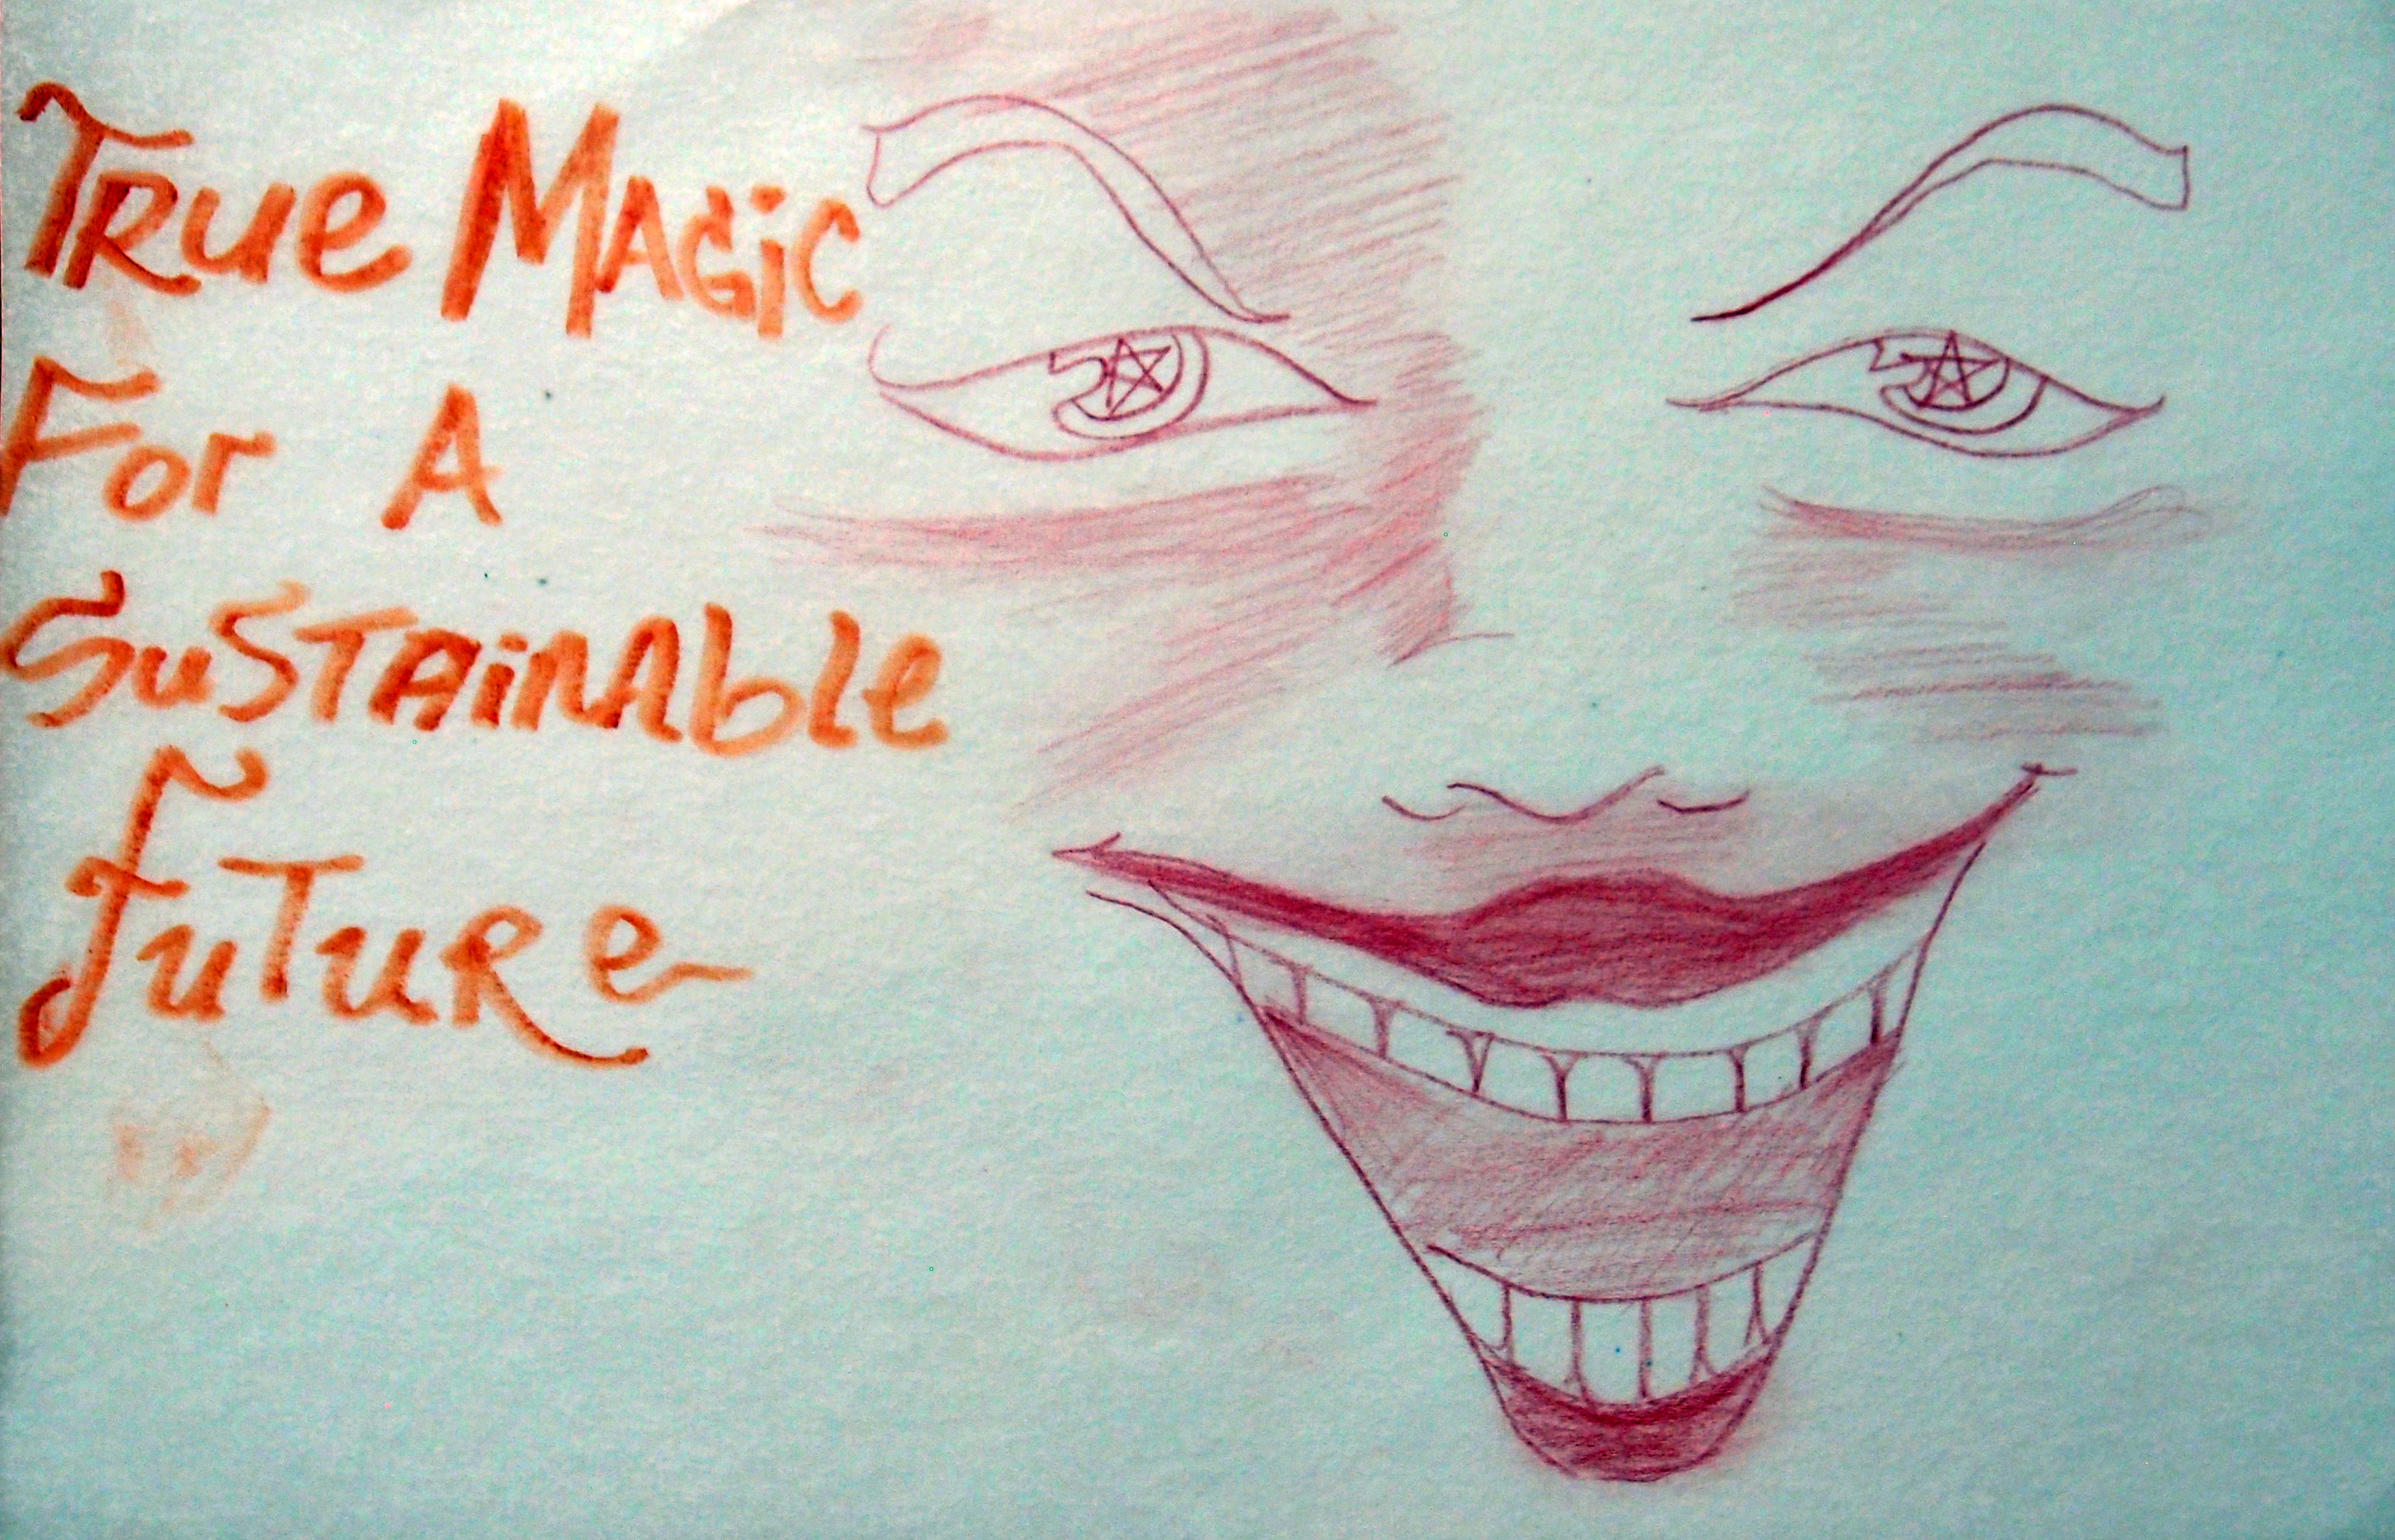 True Magic
For A
Sustainable
Future